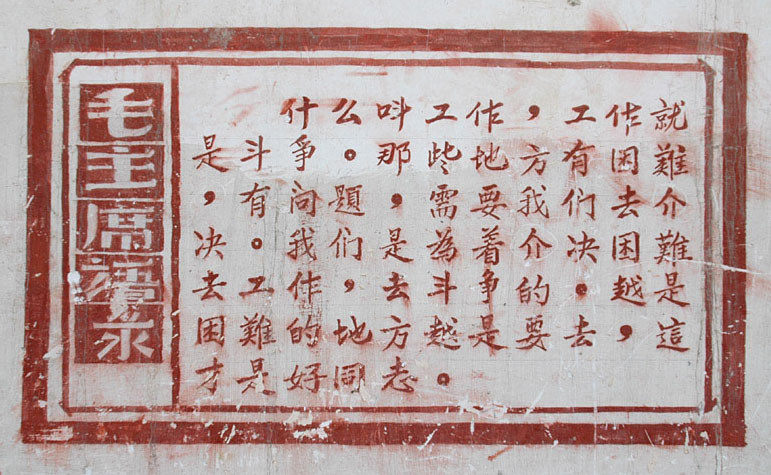 毛主席語录
什么呌工作，工作就
是斗争。那些地方有困難
，有问題，需要我们去介
决。我们是為着介决困難
去工作，去斗争的。越是
困難的地方越是要去，這
才是好同志。